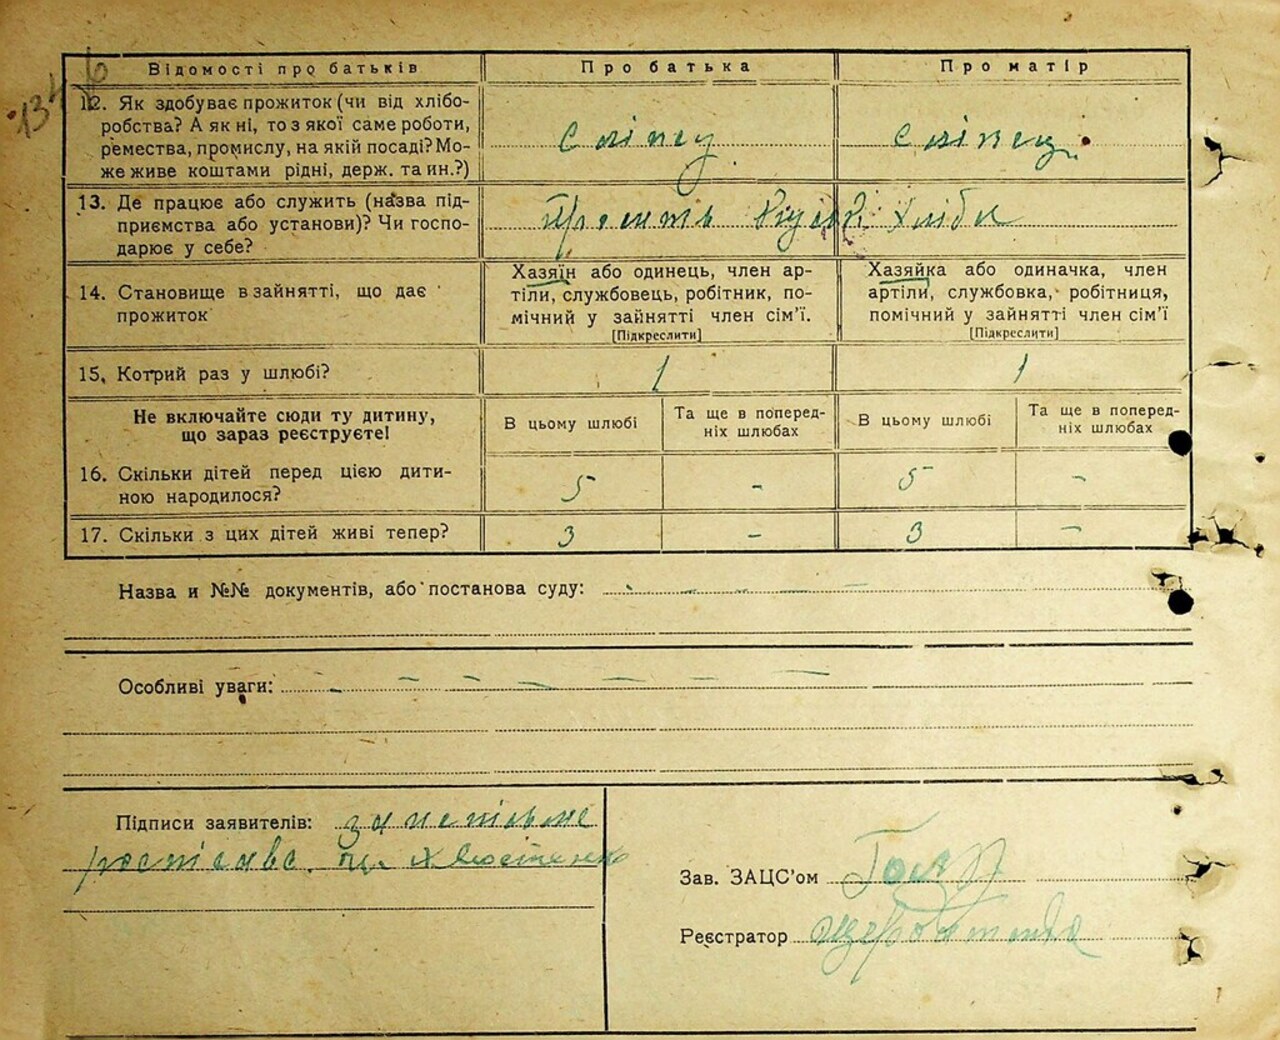 134 б
Відомості про батьків
Про батька
Про матір
12. Як здобуває прожиток (чи від хлібо-
робства? А як ні, то з якої саме роботи,
ремества, промислу, на якій посаді? Мо-
же живе коштами рідні, держ. та ин.?)
сліпец
сліпец
13. Де працює або служить (назва під-
приємства або установи)? Чи госпо-
дарює у себе?
Просить хліба
14. Становище в зайнятті, що дає
прожиток
Хазяїн або одинець, член ар-
тіли, службовець, робітник, по-
мічний у зайнятті член сім'ї.
[Підкреслити]
Хазяйка або одиначка, член
артіли, службовка, робітниця,
помічний у зайнятті член сім'ї
[Підкреслити]
15. Котрий раз у шлюбі?
1
1
Не включайте сюди ту дитину,
що зараз реєструєте!
В цьому шлюбі
Та ще в поперед-
ніх шлюбах
В цьому шлюбі
Та ще в поперед-
ніх шлюбах
16. Скільки дітей перед цією дити-
ною народилося?
5
-
5
-
17. Скільки з цих дітей живі тепер?
3
-
3
-
Назва и №№ документів, або постанова суду: - - - - -
Особливі уваги: - - - - - - -
Підписи заявителів: за неписьме
росписавс. Хвостенко
Зав. ЗАЦС'ом
Реєстратор